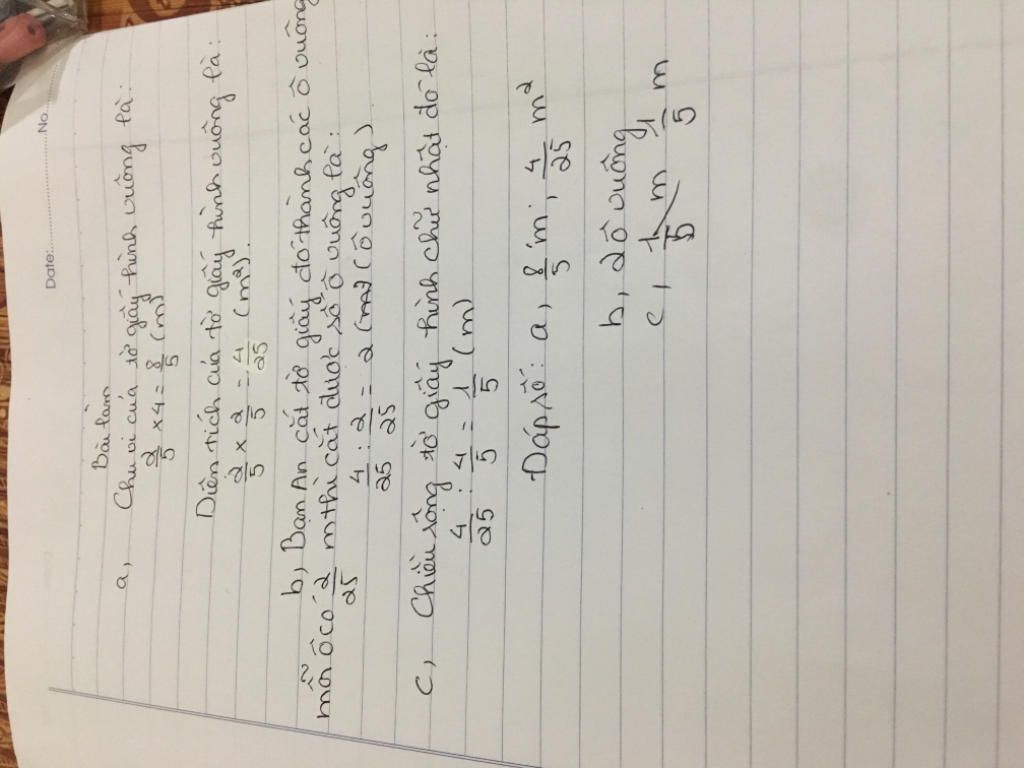 Date:..............No.
Bài làm
a, Chu vi của tờ giấy hình vuông là:
2/5 x 4 = 8/5 (m)
Diện tích của tờ giấy hình vuông là:
2/5 x 2/5 = 4/25 (m²).
b, Bạn An cắt tờ giấy đó thành các ô vuông
mỗi ô có 2/25 m thì cắt được số ô vuông là:
4/25 : 2/25 = 2 (ô vuông)
c, Chiều rộng tờ giấy hình chữ nhật đó là:
4/25 : 4/5 = 1/5 (m)
Đáp số: a, 8/5 m; 4/25 m²
b, 2 ô vuông
c, 1/5 m